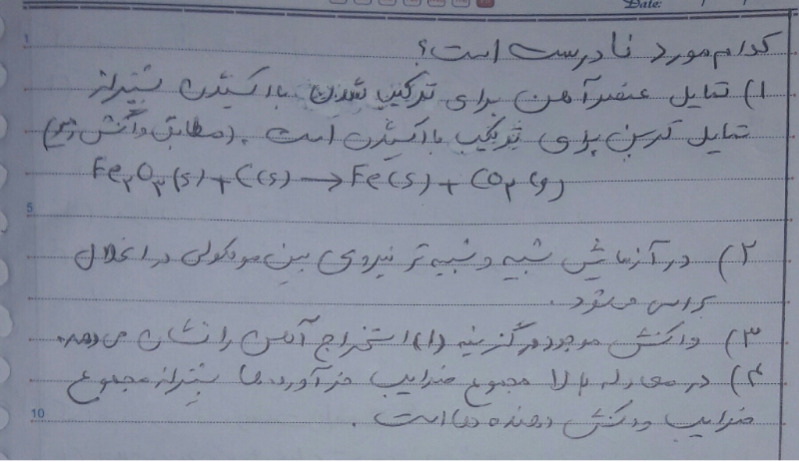 Date:
کدام مورد نادرست است؟
۱) تمایل عنصر آهن برای ترکیب شدن با اکسیژن بیشتر از
تمایل کربن برای ترکیب با اکسیژن است. (مطابق واکنش زیر)
Fe۲O۳(s) + C(s) → Fe(s) + CO۲(g)
۲) در آزمایش شبیه و شبیه تر نیروی بین مولکولی در انحلال
بررسی می شود.
۳) واکنش موجود در گزینه (۱) استخراج آهن را نشان می دهد.
۴) در معادله بالا مجموع ضرایب فرآورده ها بیشتر از مجموع
ضرایب واکنش دهنده ها است.
1
5
10